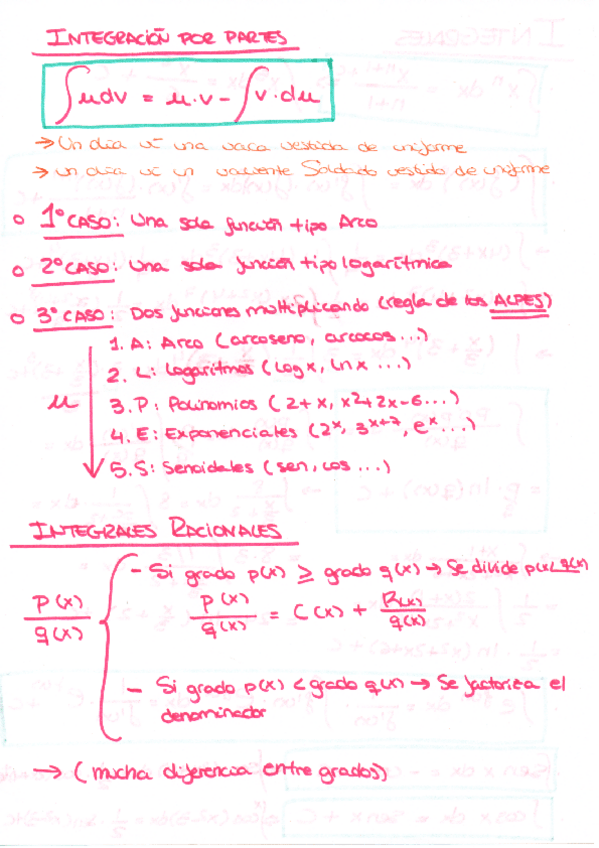 INTEGRACIÓN POR PARTES
∫udv = u·v - ∫v·du
→ Un día vi una vaca vestida de uniforme
→ un día vi un valiente Soldado vestido de uniforme
o 1º CASO: Una sola función tipo Arco
o 2º CASO: Una sola función tipo logarítmica
o 3º CASO: Dos funciones multiplicando (regla de los ALPES)
1. A: Arco (arcoseno, arcocos...)
2. L: logaritmos (log x, ln x ...)
u ↓ 3. P: Polinomios (2+x, x²+2x-6...)
4. E: Exponenciales (2ˣ, 3ˣ⁺⁷, eˣ...)
5. S: Senoidales (sen, cos ...)
INTEGRALES RACIONALES
- Si grado p(x) ≥ grado q(x) → Se divide p(x) q(x)
P(x)/q(x) { P(x)/q(x) = C(x) + R(x)/q(x)
- Si grado p(x) < grado q(x) → Se factoriza el
denominador
→ (mucha diferencia entre grados)